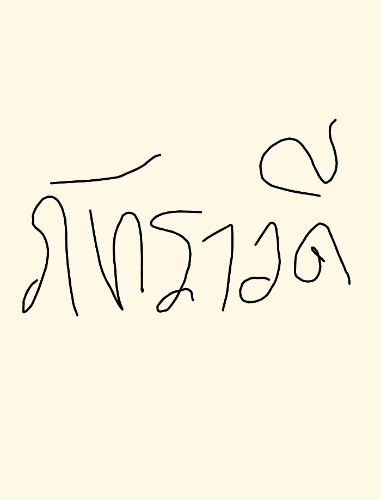 ภัทราวดี